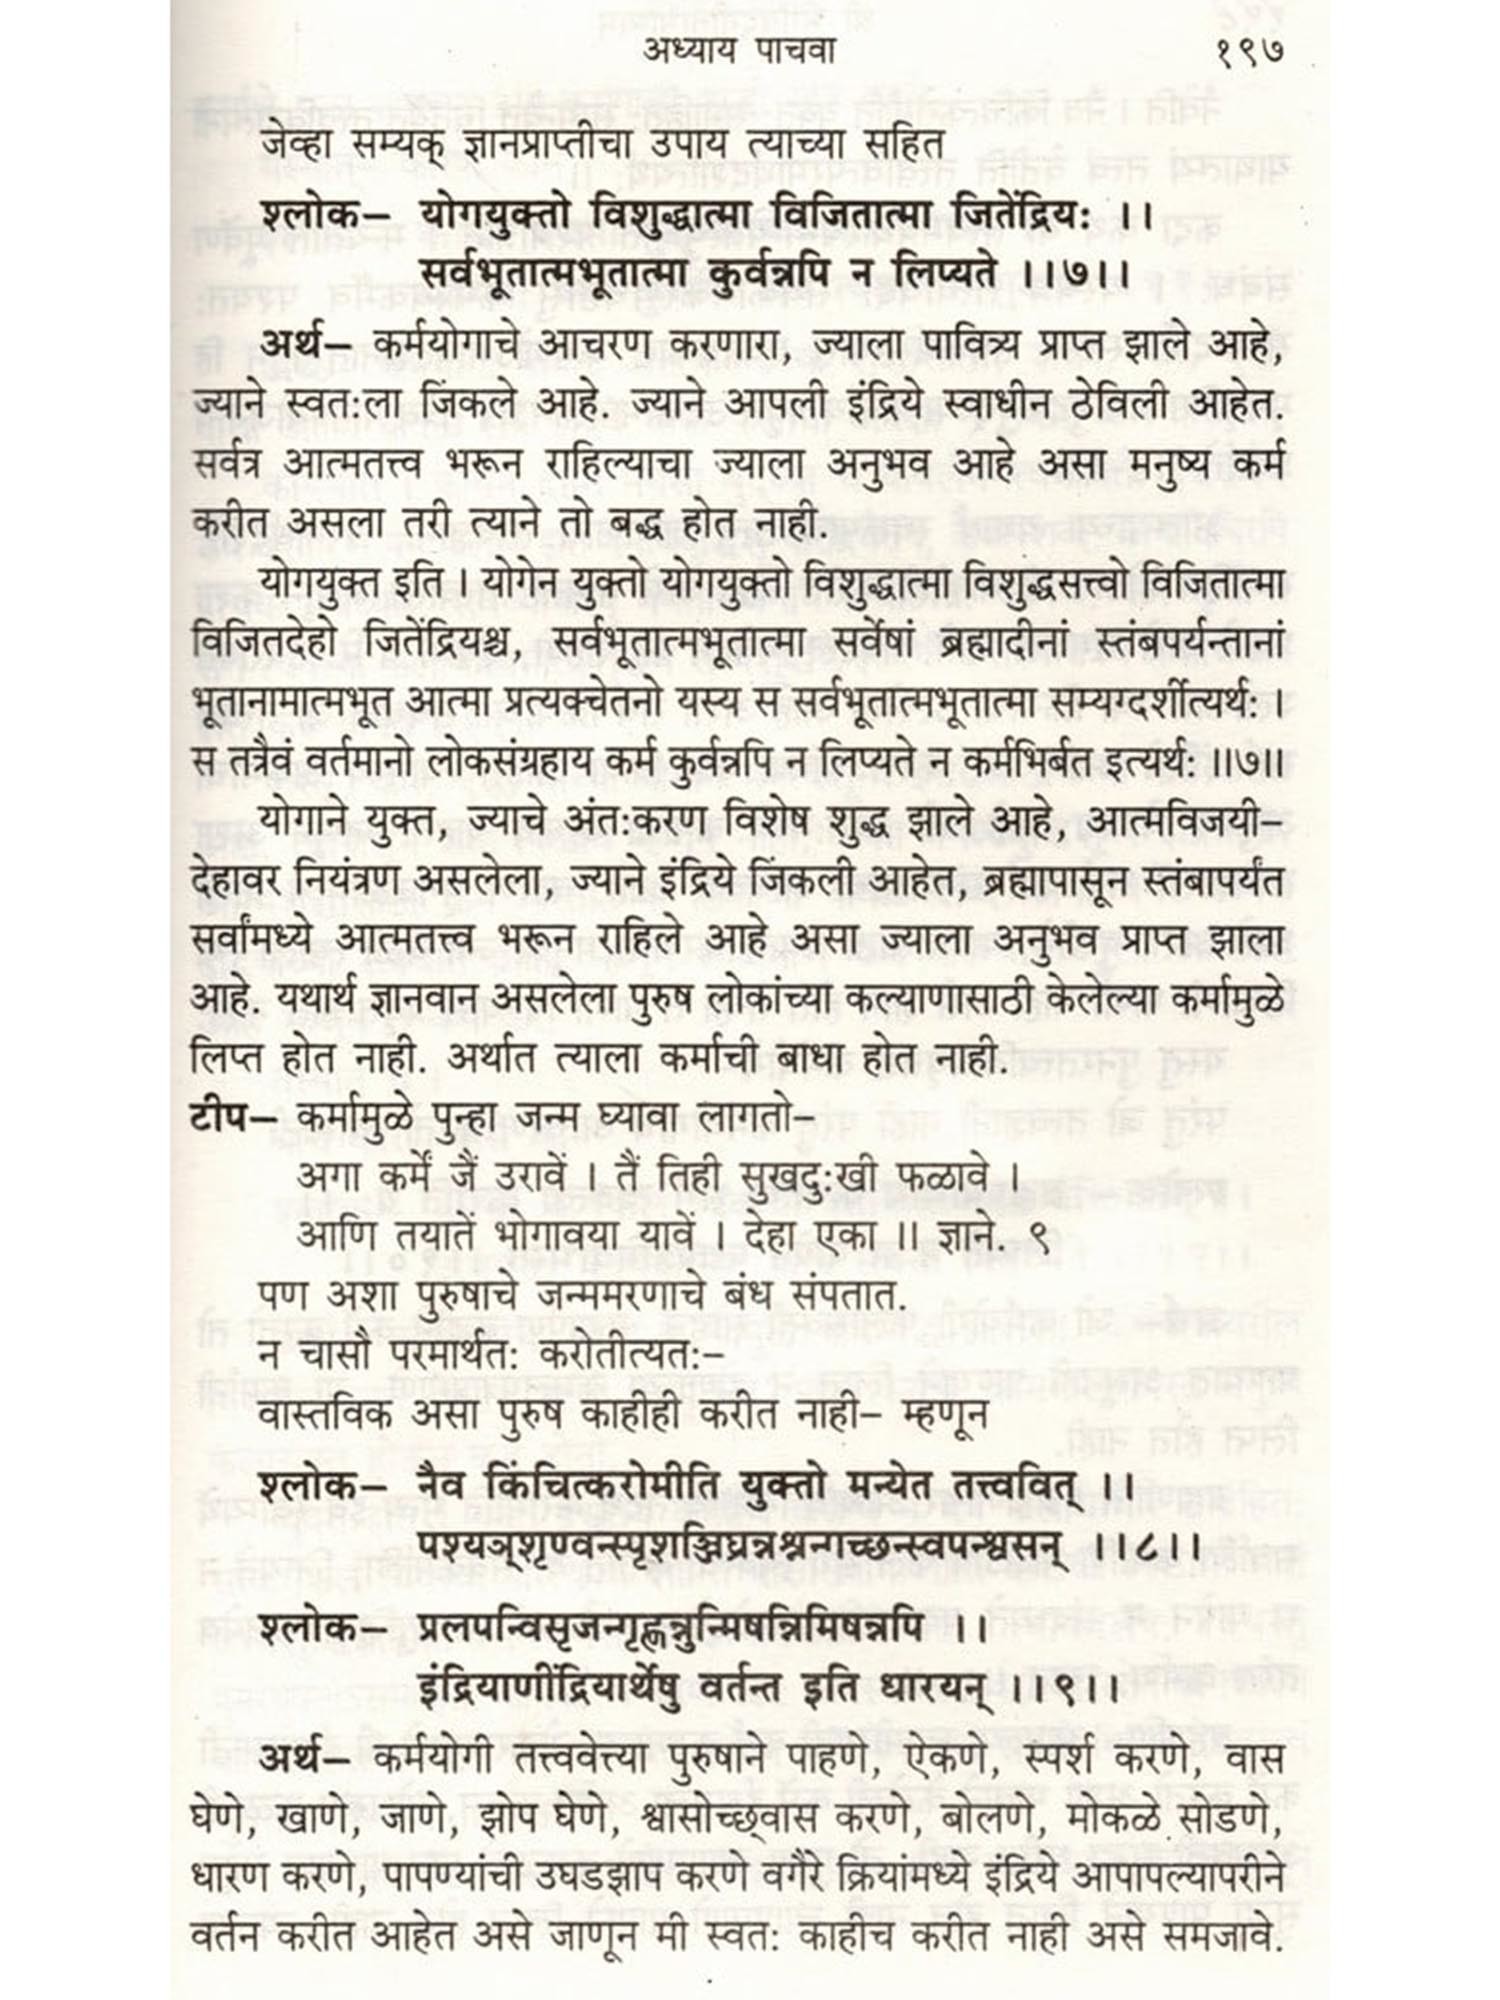 अध्याय पाचवा १९७
जेव्हा सम्यक् ज्ञानप्राप्तीचा उपाय त्याच्या सहित
श्लोक– योगयुक्तो विशुद्धात्मा विजितात्मा जितेंद्रियः ।।
सर्वभूतात्मभूतात्मा कुर्वन्नपि न लिप्यते ।।७।।
अर्थ– कर्मयोगाचे आचरण करणारा, ज्याला पावित्र्य प्राप्त झाले आहे,
ज्याने स्वतःला जिंकले आहे. ज्याने आपली इंद्रिये स्वाधीन ठेविली आहेत.
सर्वत्र आत्मतत्त्व भरून राहिल्याचा ज्याला अनुभव आहे असा मनुष्य कर्म
करीत असला तरी त्याने तो बद्ध होत नाही.
योगयुक्त इति । योगेन युक्तो योगयुक्तो विशुद्धात्मा विशुद्धसत्त्वो विजितात्मा
विजितदेहो जितेंद्रियश्च, सर्वभूतात्मभूतात्मा सर्वेषां ब्रह्मादीनां स्तंबपर्यन्तानां
भूतानामात्मभूत आत्मा प्रत्यक्चेतनो यस्य स सर्वभूतात्मभूतात्मा सम्यग्दर्शीत्यर्थः ।
स तत्रैवं वर्तमानो लोकसंग्रहाय कर्म कुर्वन्नपि न लिप्यते न कर्मभिर्बत इत्यर्थः ॥७॥
योगाने युक्त, ज्याचे अंतःकरण विशेष शुद्ध झाले आहे, आत्मविजयी–
देहावर नियंत्रण असलेला, ज्याने इंद्रिये जिंकली आहेत, ब्रह्मापासून स्तंबापर्यंत
सर्वांमध्ये आत्मतत्त्व भरून राहिले आहे असा ज्याला अनुभव प्राप्त झाला
आहे. यथार्थ ज्ञानवान असलेला पुरुष लोकांच्या कल्याणासाठी केलेल्या कर्मामुळे
लिप्त होत नाही. अर्थात त्याला कर्माची बाधा होत नाही.
टीप– कर्मामुळे पुन्हा जन्म घ्यावा लागतो–
अगा कर्में जैं उरावें । तैं तिही सुखदुःखी फळावे ।
आणि तयातें भोगावया यावें । देहा एका ॥ ज्ञाने. ९
पण अशा पुरुषाचे जन्ममरणाचे बंध संपतात.
न चासौ परमार्थतः करोतीत्यतः–
वास्तविक असा पुरुष काहीही करीत नाही– म्हणून
श्लोक– नैव किंचित्करोमीति युक्तो मन्येत तत्त्ववित् ।।
पश्यञ्शृण्वन्स्पृशञ्जिघ्रन्नश्नन्गच्छन्स्वपन्श्वसन् ।।८।।
श्लोक– प्रलपन्विसृजन्गृह्णन्नुन्मिषन्निमिषन्नपि ।।
इंद्रियाणींद्रियार्थेषु वर्तन्त इति धारयन् ।।९।।
अर्थ– कर्मयोगी तत्त्ववेत्त्या पुरुषाने पाहणे, ऐकणे, स्पर्श करणे, वास
घेणे, खाणे, जाणे, झोप घेणे, श्वासोच्छ्वास करणे, बोलणे, मोकळे सोडणे,
धारण करणे, पापण्यांची उघडझाप करणे वगैरे क्रियांमध्ये इंद्रिये आपापल्यापरीने
वर्तन करीत आहेत असे जाणून मी स्वतः काहीच करीत नाही असे समजावे.